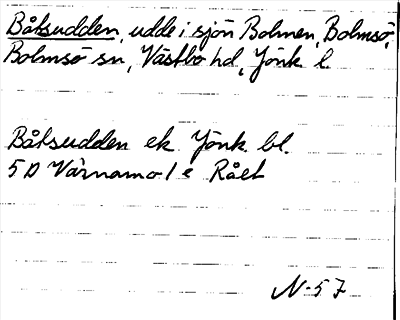 Båksudden, udde i sjön Bolmen, Bolmsö,
Bolmsö sn, Västbo hd, Jönk. l.
Båksudden ek. Jönk. bl.
5 D Värnamo 1 e Rået
N-57